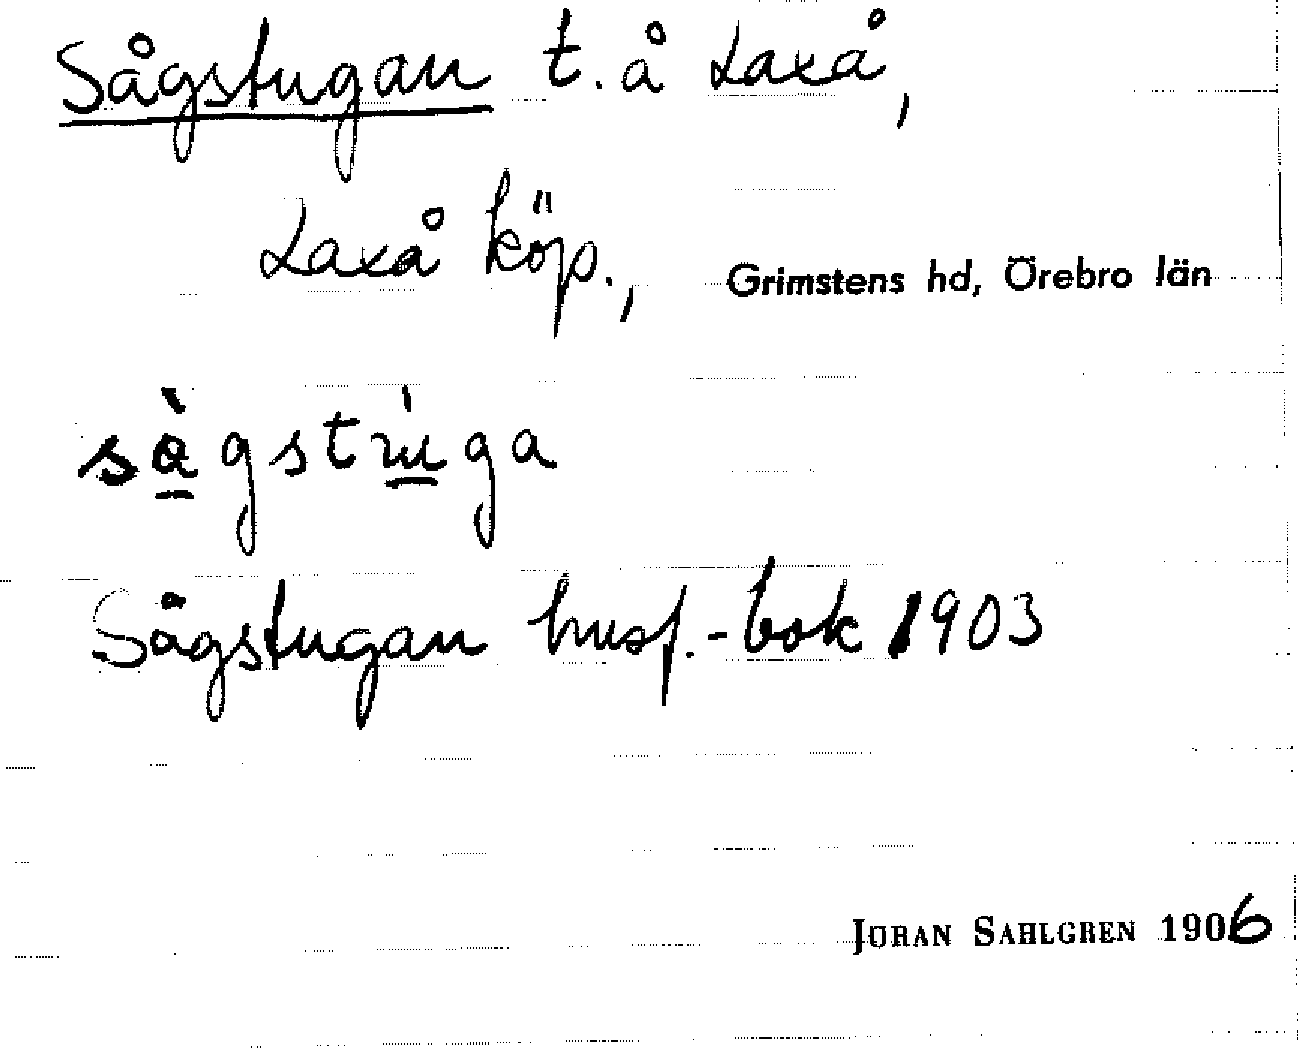 Sågstugan t. å Laxå,
Laxå köp., Grimstens hd, Örebro län
sàgstúga
Sågstugan husf.-bok 1903
JÖRAN SAHLGREN 1906